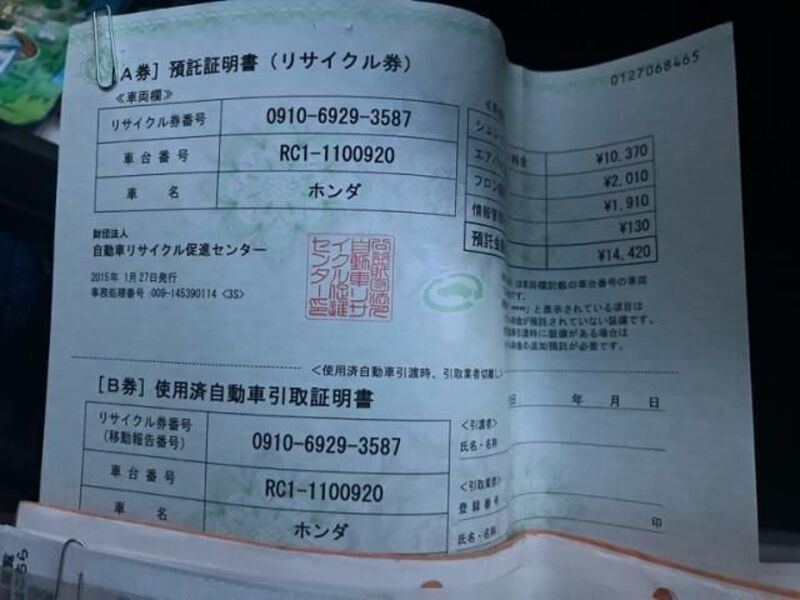 0127068465
[A券] 預託証明書（リサイクル券）
≪車両欄≫
リサイクル券番号 0910-6929-3587
車台番号 RC1-1100920
車名 ホンダ
シュレ 料金 ¥10,370
エアバ ¥2,010
フロン ¥1,910
情報管理 ¥130
預託金 ¥14,420
財団法人
自動車リサイクル促進センター
2015年 1月27日発行
事務処理番号:009-145390114 <3S>
公益財団法人
自動車リサ
イクル促進
センター印
は車両欄記載の車台番号の車両
です。
」と表示されている項目は
料金が預託されていない装備です。
引渡時に装備がある場合は
料金の追加預託が必要です。
<使用済自動車引渡時、引取業者切離し>
[B券] 使用済自動車引取証明書
リサイクル券番号
(移動報告番号) 0910-6929-3587
車台番号 RC1-1100920
車名 ホンダ
日: 年 月 日
<引渡者>
氏名・名称
<引取業者>
登録番号
印
氏名・名称